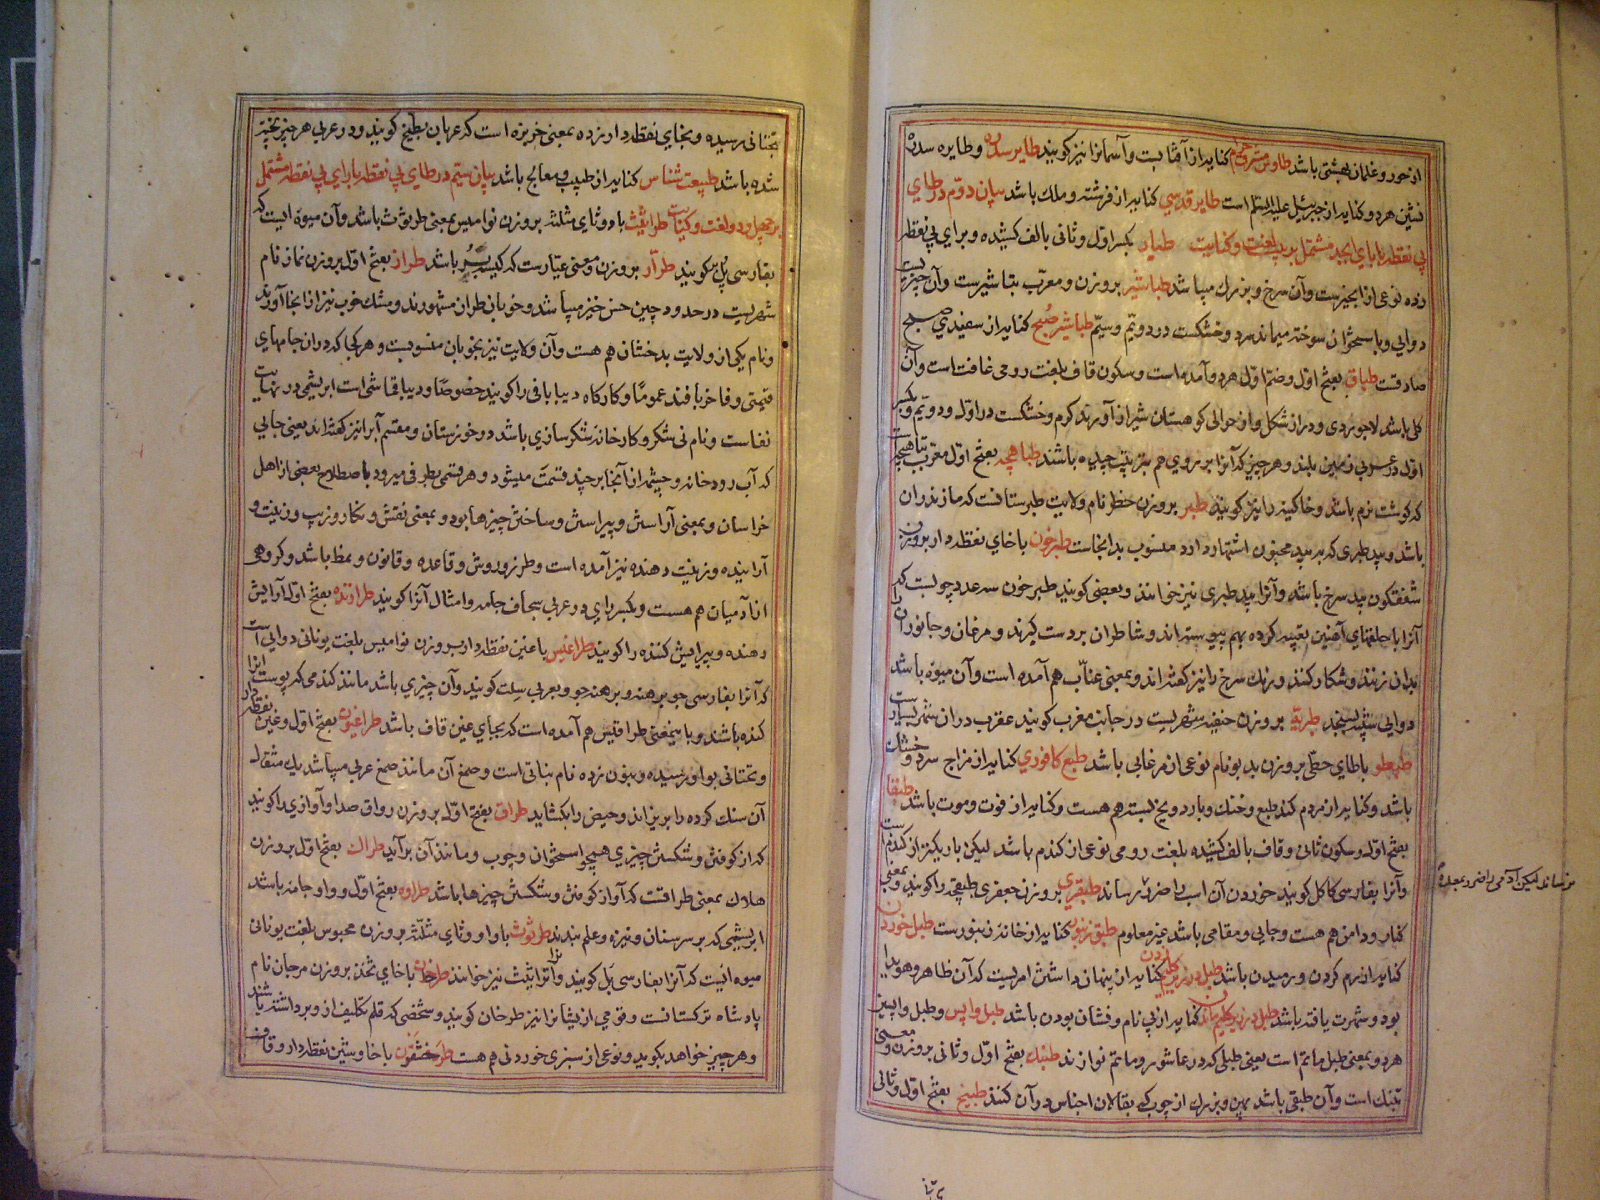 از حور و غلمان بهشتی باشد طاوس مشرقی خرام کنایه از آفتابست و آسمانرا نیز گویند طایر سدره و طایره سدره
نشین هر دو کنایه از جبرئیل علیه السلم است طایر قدسی کنایه از فرشته و ملک باشد بیان دوّم در طای
بی نقطه با بای ابجد مشتمل بر لغت و کنایت طبار بکسر اوّل و ثانی بالف کشیده و برای بی نقطه
زده نوعی از انجیرست و آن سرخ و بزرک میباشد طباشیر بر وزن و معرّب تباشیرست و آن چیزیست
دوایی و باستخوان سوخته میماند سرد و خشکست در دویّم و سیّم طباشیر صبح کنایه از سفیدی صبح
صادقست طباق بفتح اوّل و ضم اوّل هر دو آمده است و سکون قاف بلغت رومی غافت است و آن
کلی باشد لاجوردی و دراز شکل و از حوالی کوهستان شیراز آورند کرم و خشکست در اوّل و دویّم و بکسر
اوّل در عربی زمین بلند و هر چیز که آنرا بر روی هم بترتیب چیده باشند طباهچه بفتح اوّل معرّب تباهچه است
که کوشت نرم باشد و خاکینه را نیز کویند طبر بر وزن خطر نام ولایت طبرستانست که مازندران
باشد و بید طبری که به بید مجنون اشتهار دارد منسوب بدانجاست طبرخون با خای نقطه دار بر وزن
شفقکون بید سرخ باشد و آنرا بید طبری نیز خوانند و بعضی کویند طبرخون سه عدد چوبست که
آنرا با حلقهای آهنین تعبیه کرده بهم پیوسته اند و شاطران بر دست کیرند و مرغان و جانوران را
بدان زنند و شکار کنند و رنک سرخ را نیز کفته اند و بمعنی عنّاب هم آمده است و آن میوه باشد
دوایی شبیه بسنجد طبرقه بر وزن حنیفه شهریست در جانب مغرب کویند عقرب در ان شهر بسیارست
طبطو با طای حطّی بر وزن بدبو نام نوعی از مرغابی باشد طبع کافوری کنایه از مزاج سرد و خشک
باشد و کنایه از مردم کند طبع و خنک و بارد و یخ بسته هم هست و کنایه از فوت و موت باشد طبقا
بفتح اوّل و سکون ثانی و قاف بالف کشیده بلغت رومی نوعی از کندم باشد لیکن باریکتر از کندم است
و آنرا بفارسی کاکل کویند خوردن آن اسب را ضرر رساند طبقری بر وزن جعفری طبقچه را کویند و بمعنی
کنار و دامن هم هست و جایی و مقامی باشد غیر معلوم طبق زنبور کنایه از خانه زنبورست طبل خوردن
کنایه از رم کردن و رمیدن باشد طبل در زیر کلیم زدن کنایه از پنهان داشتن امریست که آن ظاهر و هویدا
بود و شهرت یافته باشد طبل در زیر کلیم ماندن کنایه از بی نام و نشان بودن باشد طبل واپس و طبل واپسین
هر دو بمعنی طبل ماتم است یعنی طبلی که در عاشور و ماتم نوازند طبنک بفتح اوّل و ثانی بر وزن و معنی
تبنک است و آن طبقی باشد پهن و بزرک از چوب که بقالان اجناس در آن کنند طبیخ بفتح اوّل و ثانی
نرساند لیکن آدمی را ضرر بمعده
بتحتانی رسیده و بخای نقطه دار زده بمعنی خربزه است که عربان بطیخ کویند و در عربی هر چیز پخته
شده باشد طبیعت شناس کنایه از طبیب و معالج باشد بیان سیّم در طای بی نقطه با رای بی نقطه مشتمل
بر چهل و دو لغت و کنایت طراثیث با دو ثای مثلثه بر وزن نوامیس بمعنی طرثوث باشد و آن میوه ایست که
بفارسی بل کویند طرّار بر وزن و معنی عیّارست که کیسه بر باشد طراز بفتح اوّل بر وزن نماز نام
شهریست در حدود چین حسن خیز میباشد و خوبان طراز مشهورند و مشک خوب نیز از انجا آورند
و نام یکی از ولایت بدخشان هم هست و آن ولایت نیز بخوبان منسوبست و هر کجا که در ان جامهای
قیمتی و فاخر بافند عمومًا و کارکاه دیبابافی را کویند خصوصًا و دیبا قماشی است ابریشمی در نهایت
نفاست و نام نی شکر و کارخانه شکرسازی باشد در خوزستان و مقسم آبرا نیز کفته اند یعنی جایی
که آب رودخانه و چشمه از آنجا بر چند قسمت میشود و هر قسمی بطرفی میرود باصطلاح بعضی از اهل
خراسان و بمعنی آراستن و پیراستن و ساختن چیزها بود و بمعنی نقش و نکار و زیب و زینت و
آراینده و زینت دهنده نیز آمده است و طرز و روش و قاعده و قانون و نمط باشد و کروهی
از آدمیان هم هست و بکسر رای در عربی سجاف جامه و امثال آنرا کویند طرازنده بفتح اوّل آرایش
دهنده و پیرایش کننده را کویند طراغیس با غین نقطه دار بر وزن نوامیس بلغت یونانی دوایی است
که آنرا بفارسی جو برهنه و برهنه جو و بعربی سلت کویند و آن چیزی باشد مانند کندمی که پوست آنرا
کنده باشند و باین معنی طراقیس هم آمده است که بجای غین قاف باشد طراغیون بفتح اوّل و غین نقطه دار
و تحتانی بواو رسیده و بنون زده نام نباتی است و صمغ آن مانند صمغ عربی میباشد یک مثقال
آن سنک کرده را بریزاند و حیض را بکشاید طراق بفتح اوّل بر وزن رواق صدا و آوازی را کویند
که از کوفتن و شکستن چیزی همچو استخوان و چوب و مانند آن برآید طراک بفتح اوّل بر وزن
هلاک بمعنی طراقست که آواز کوفتن و شکستن چیزها باشد طراوه بفتح اوّل و واو جامه باشد
ابریشمی که بر سر سنان و نیزه و علم بندند طرثوث با واو و ثای مثلّثه بر وزن محبوس بلغت یونانی
میوه ایست که آنرا بفارسی بل کویند و آنرا نیز خوانند طرخان با خای ثخذ بر وزن مرجان نام
پادشاه ترکستانست و قومی از ایشانرا نیز طرخان کویند و شخصی که قلم تکلیف از و برداشته باشند
و هر چیز خواهد بکوید و نوعی از سبزی خوردنی هم هست طرخشقون با خا و شین نقطه دار و قاف